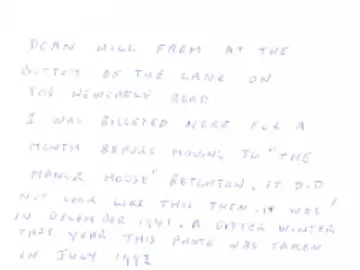 DEAN HILL FARM AT THE
BOTTOM OF THE LANE ON
THE NEWCASTLE ROAD
I WAS BILLETED HERE FOR A
MONTH BEFORE MOVING TO "THE
MANOR HOUSE" BETCHTON. IT DID
NOT LOOK LIKE THIS THEN. IT WAS
IN DECEMBER 1941. A BITTER WINTER
THAT YEAR THIS PHOTO WAS TAKEN
IN JULY